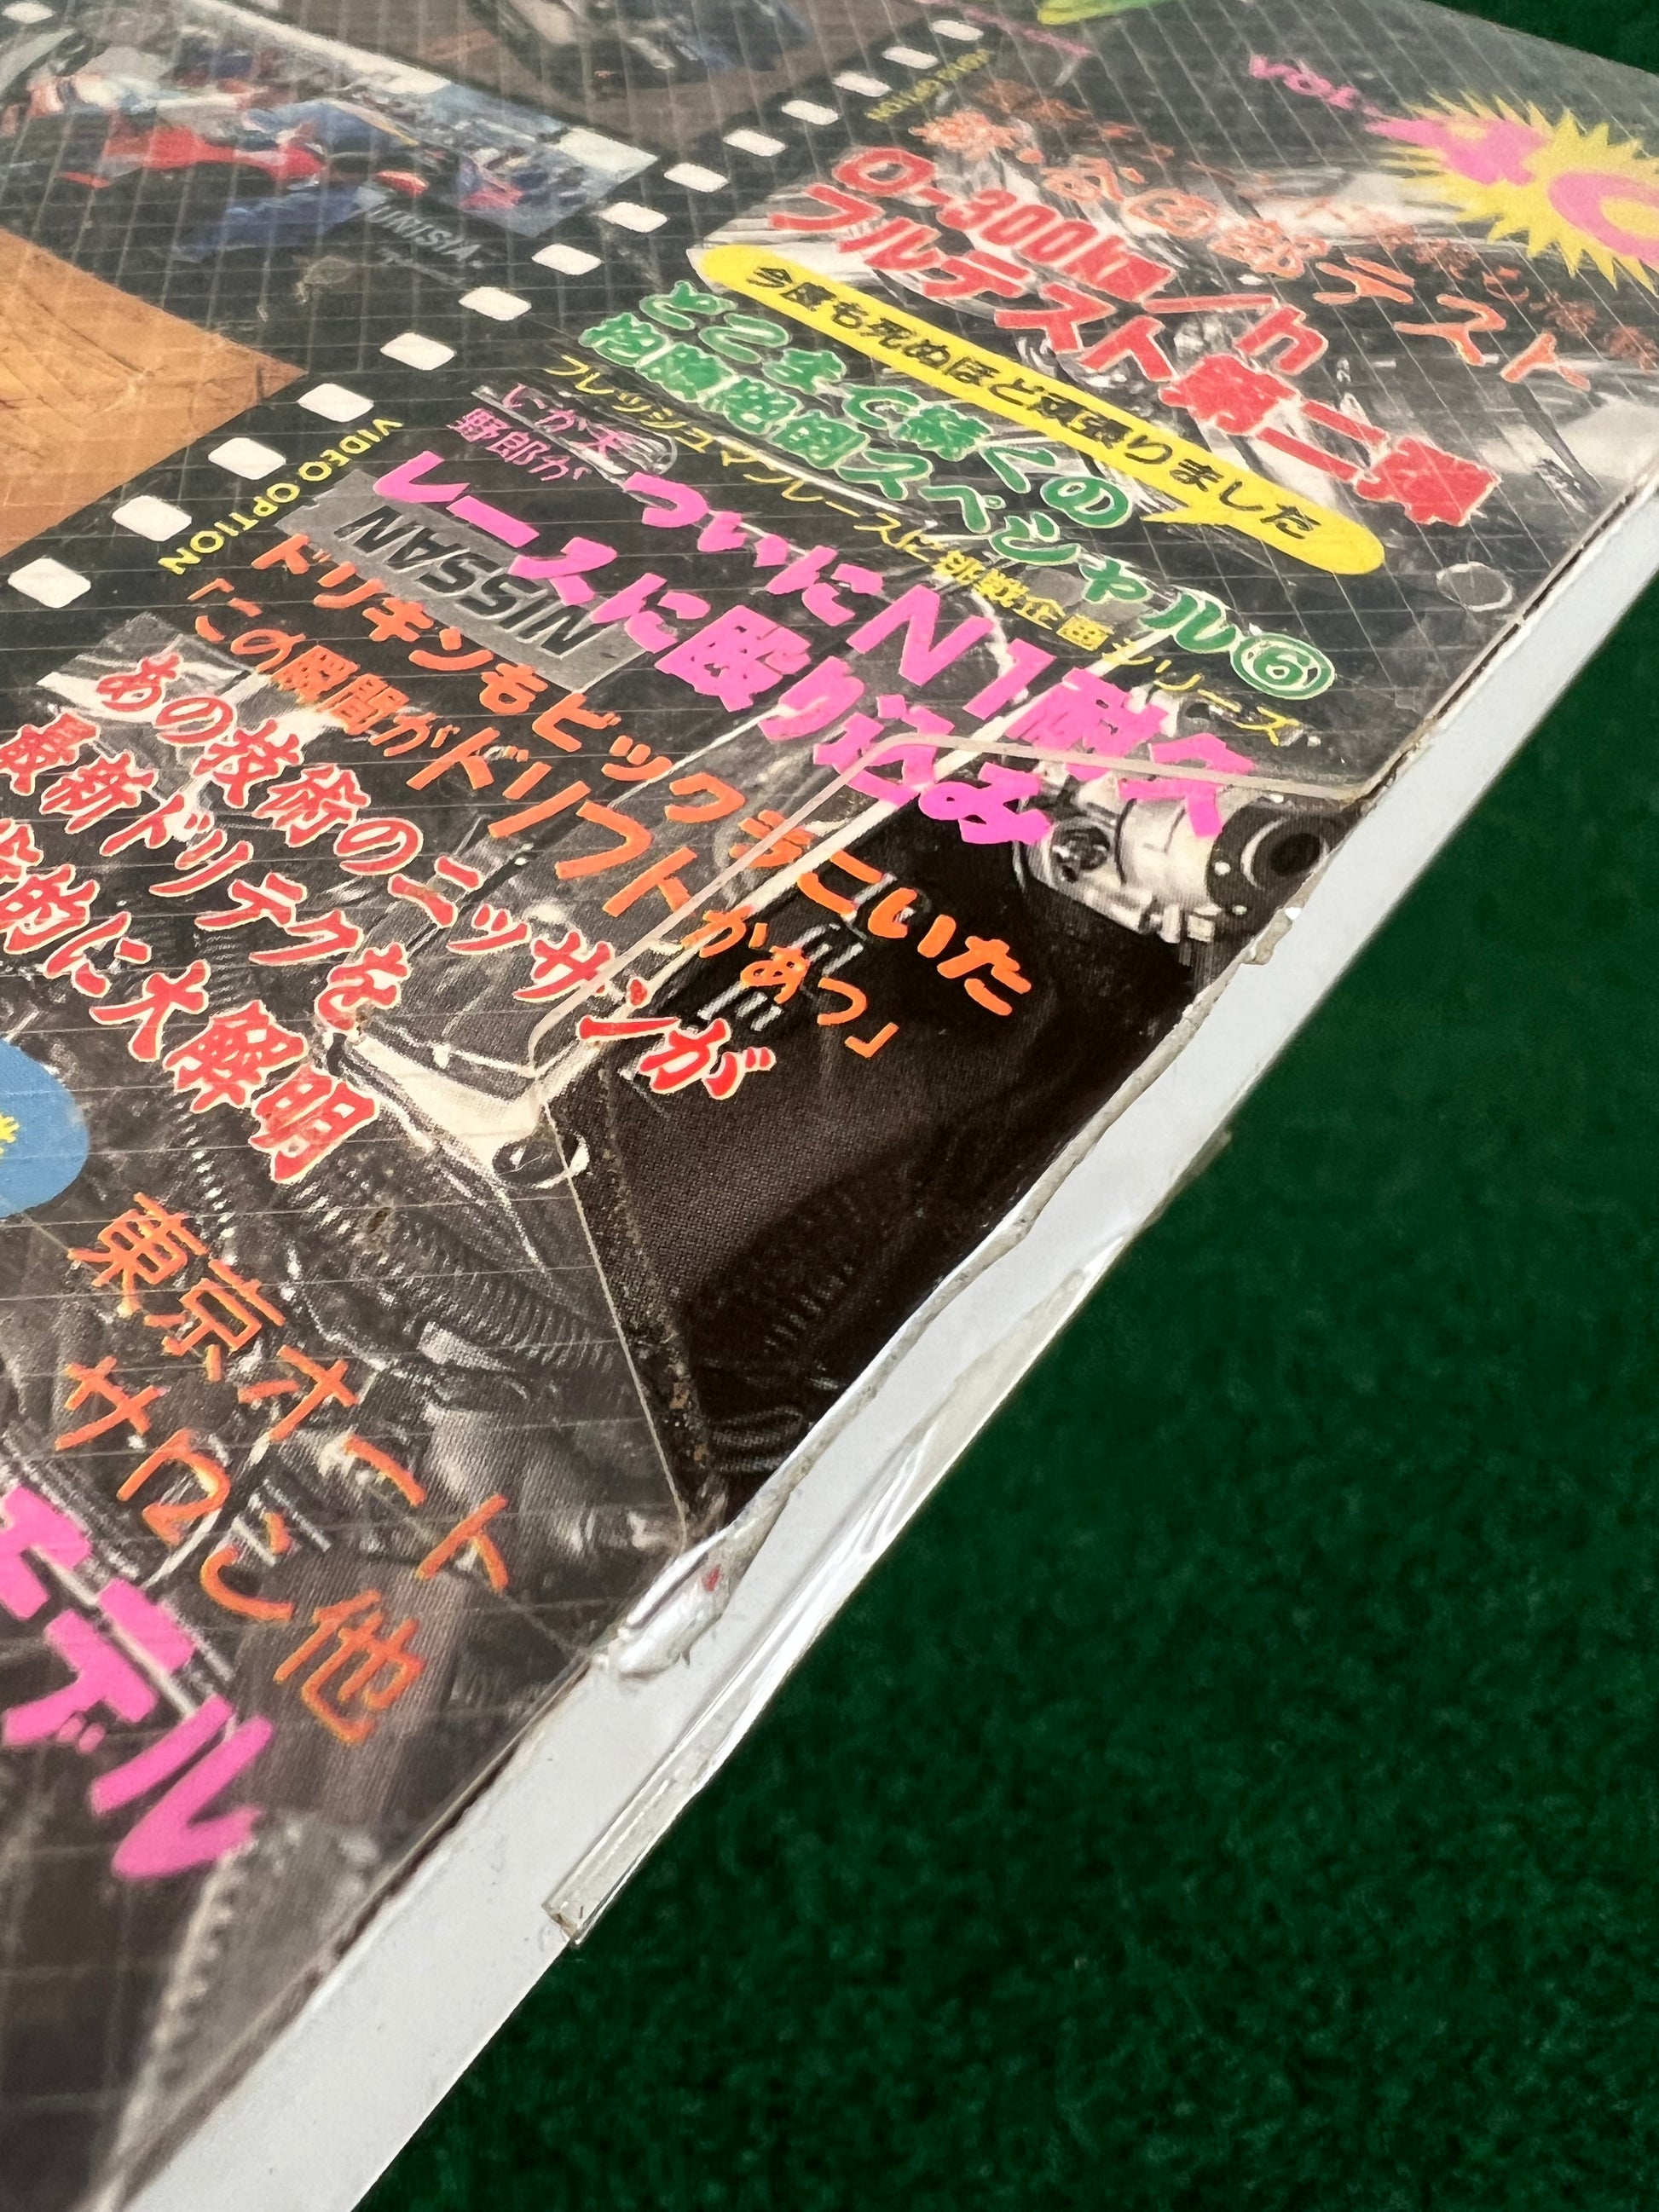 VOL.
テスト
0-300km/h
フルテスト第二弾
今度も死ぬほど頑張りました
どこまで続くの
危険絶倒スペシャル⑥
フレッシュマンレースに挑戦企画シリーズ
いか天
野郎が
ついにN1耐久
レースに殴り込み
NISSAN
ドリキンもビックラこいた
「この瞬間がドリフトかぁっ」
あの技術のニッサンが
最新ドリテクを
的に大解明
東京オート
サロン他
デル
VIDEO OPTION
VIDEO OPTION
UNISIA